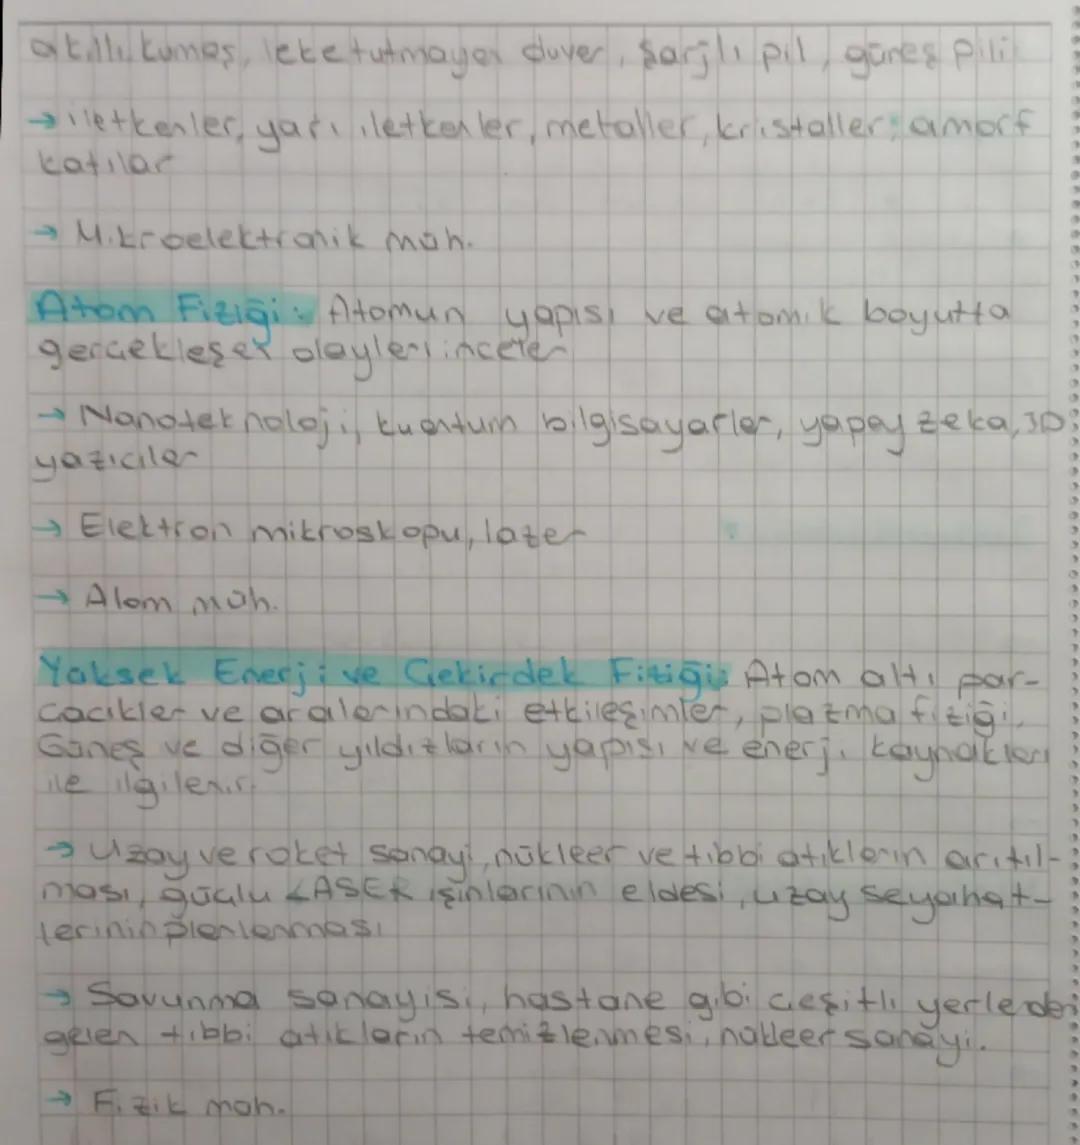 akıllı kumaş, leke tutmayan duvar, şarjlı pil, güneş pili
→ iletkenler, yarı iletkenler, metaller, kristaller, amorf
katılar
→ Mikroelektronik müh.
Atom Fiziği: Atomun yapısı ve atomik boyutta
gerçekleşen olayları inceler
→ Nanoteknoloji, kuantum bilgisayarlar, yapay zeka, 3D
yazıcılar
→ Elektron mikroskopu, lazer
→ Atom müh.
Yüksek Enerji ve Çekirdek Fiziği: Atom altı par-
cacıklar ve aralarındaki etkileşimler, plazma fiziği,
Güneş ve diğer yıldızların yapısı ve enerji kaynakları
ile ilgilenir.
→ Uzay ve roket sanayi, nükleer ve tıbbi atıkların arıtıl-
ması, güçlü LASER ışınlarının eldesi, uzay seyahat-
lerinin planlanması
→ Savunma sanayisi, hastane gibi çeşitli yerlerden
gelen tıbbi atıkların temizlenmesi, nükleer sanayi.
→ Fizik müh.